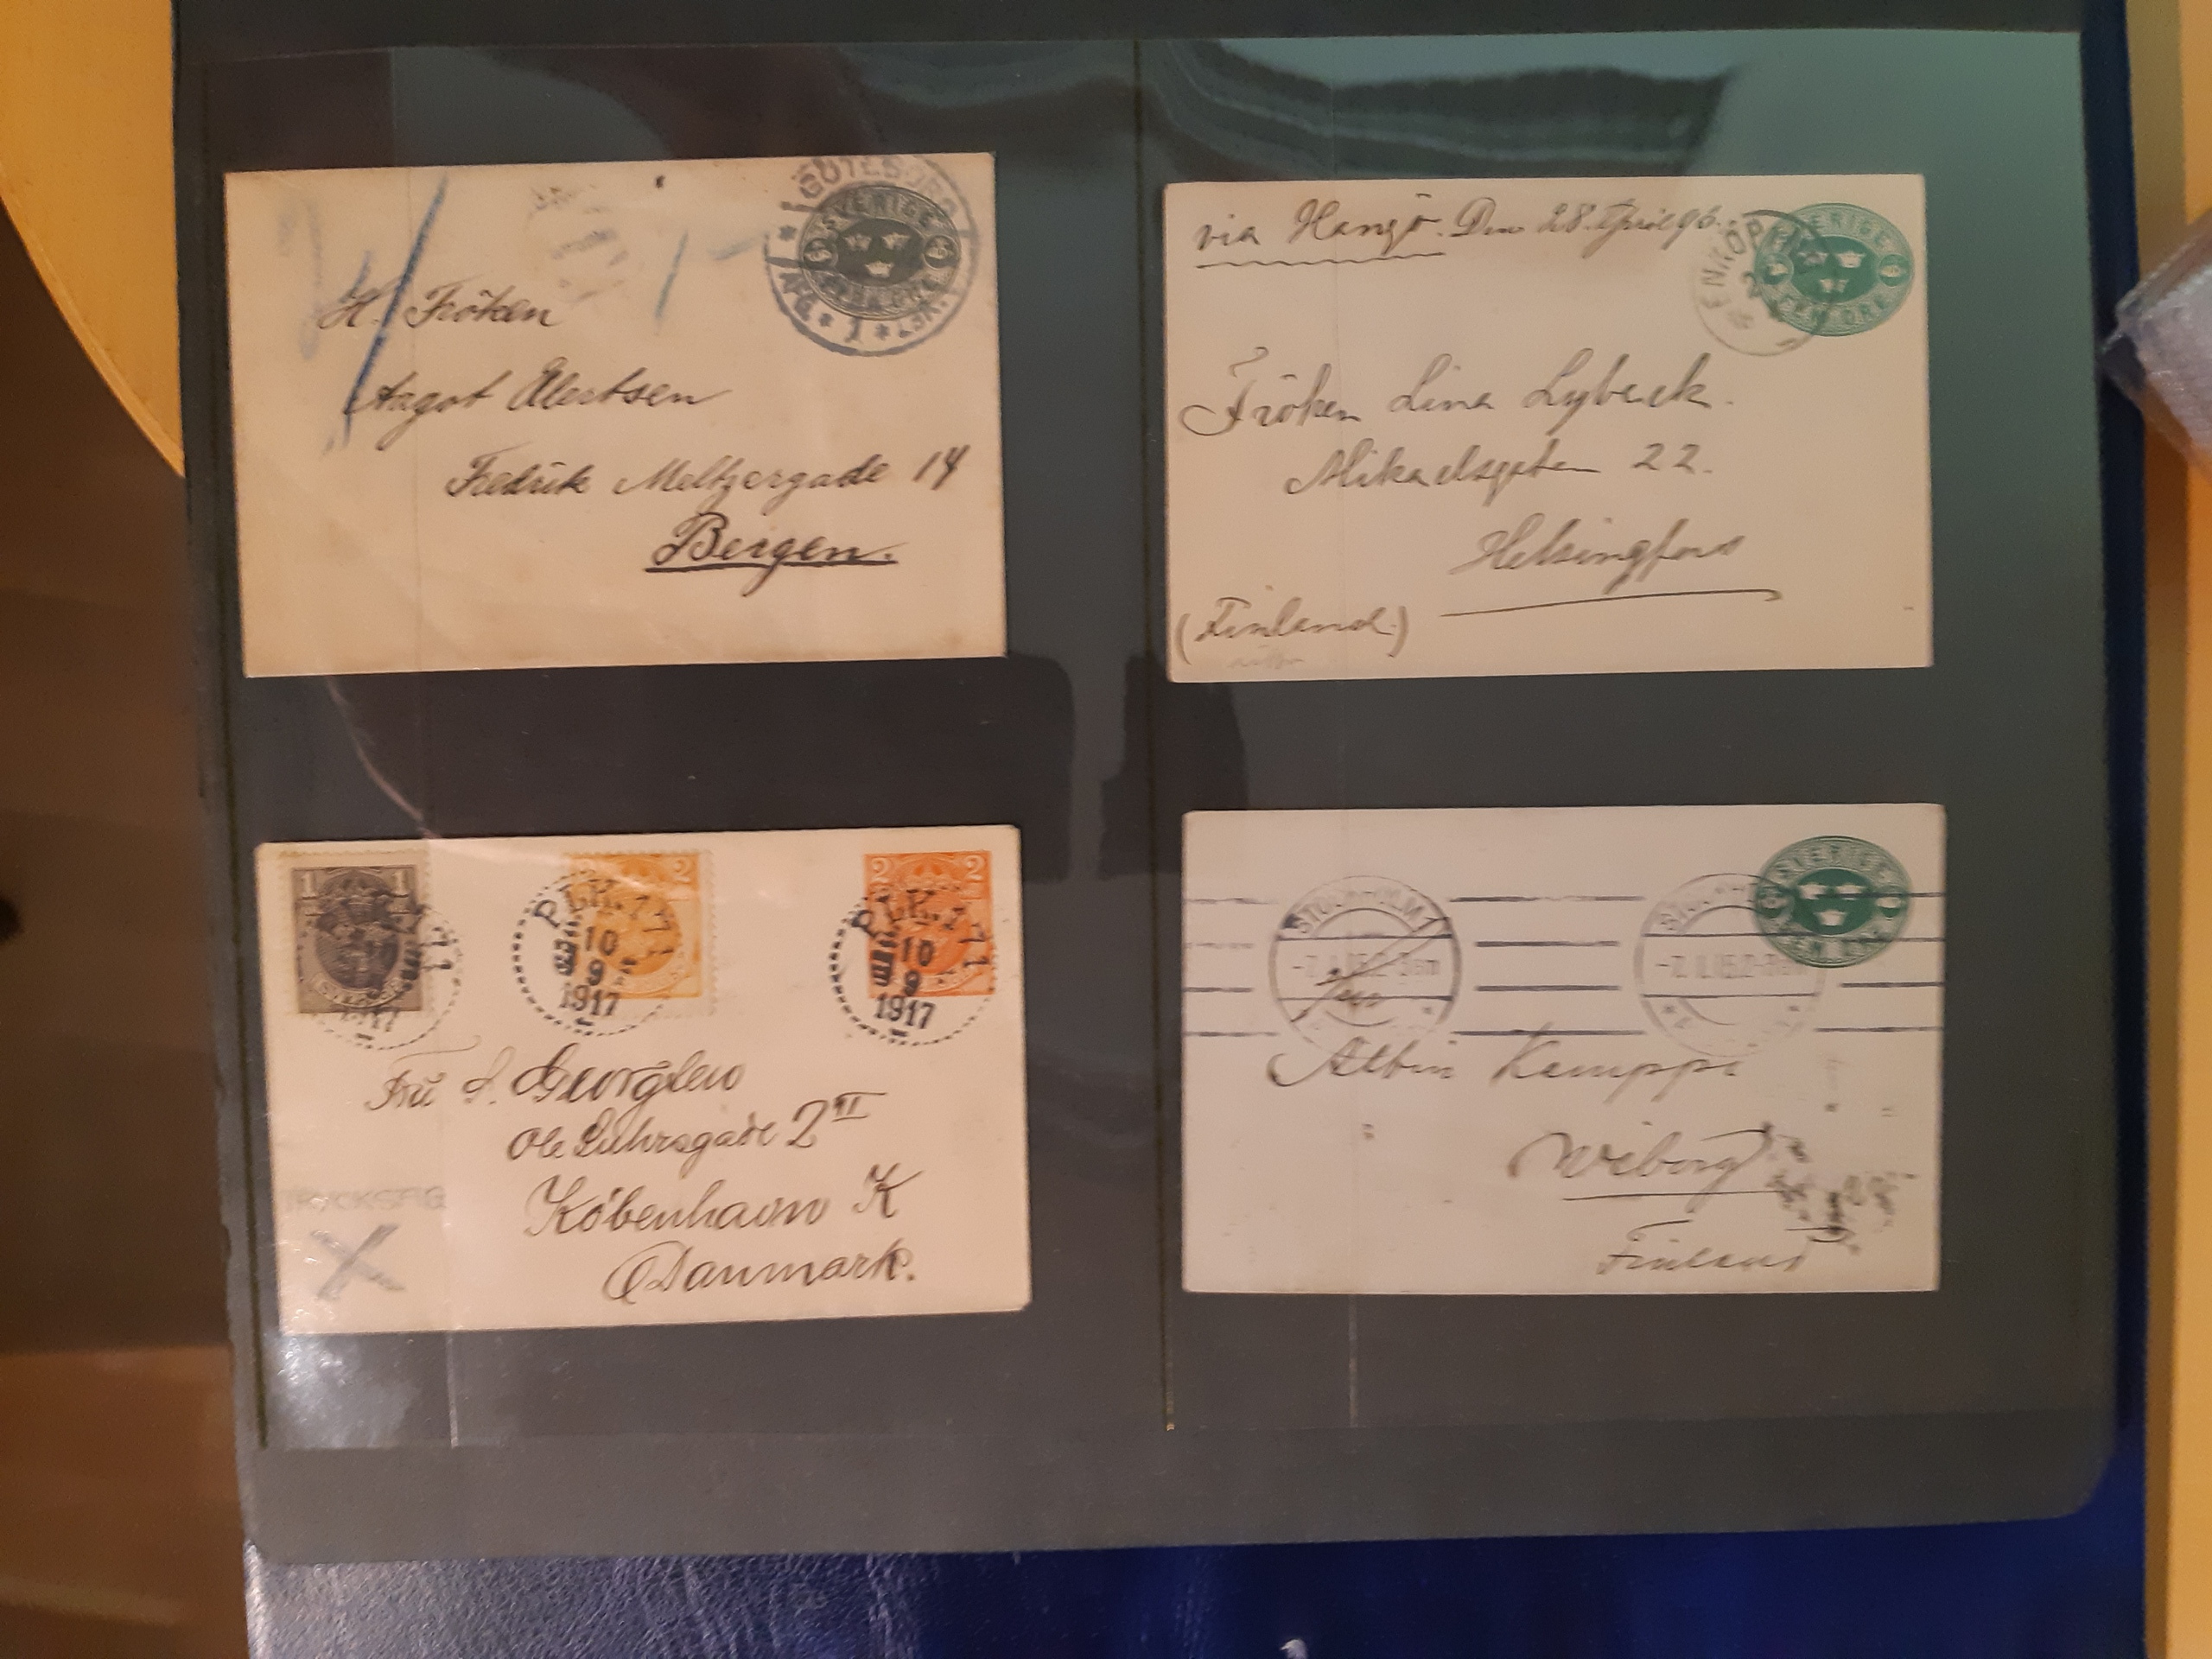 GÖTEBORG
SVERIGE
H. Fröken
Aagot Elertsen
Fredrik Meltzergade 14
Bergen.
via Hangö. Den 28. April 96.
SVERIGE
FEM ÖRE
Fröken Lina Lybeck.
Mikaelsgatan 22.
Helsingfors
(Finland.)
1 1
2
2 2
PLK.171
10
9
1917
PLK.171
10
9
1917
Fru S.
2 II
København K
Danmark.
TRYCKSFIG
SVERIGE
FEM ÖRE
STOCKHOLM
Albin Kamppi
Wiborg
Finland